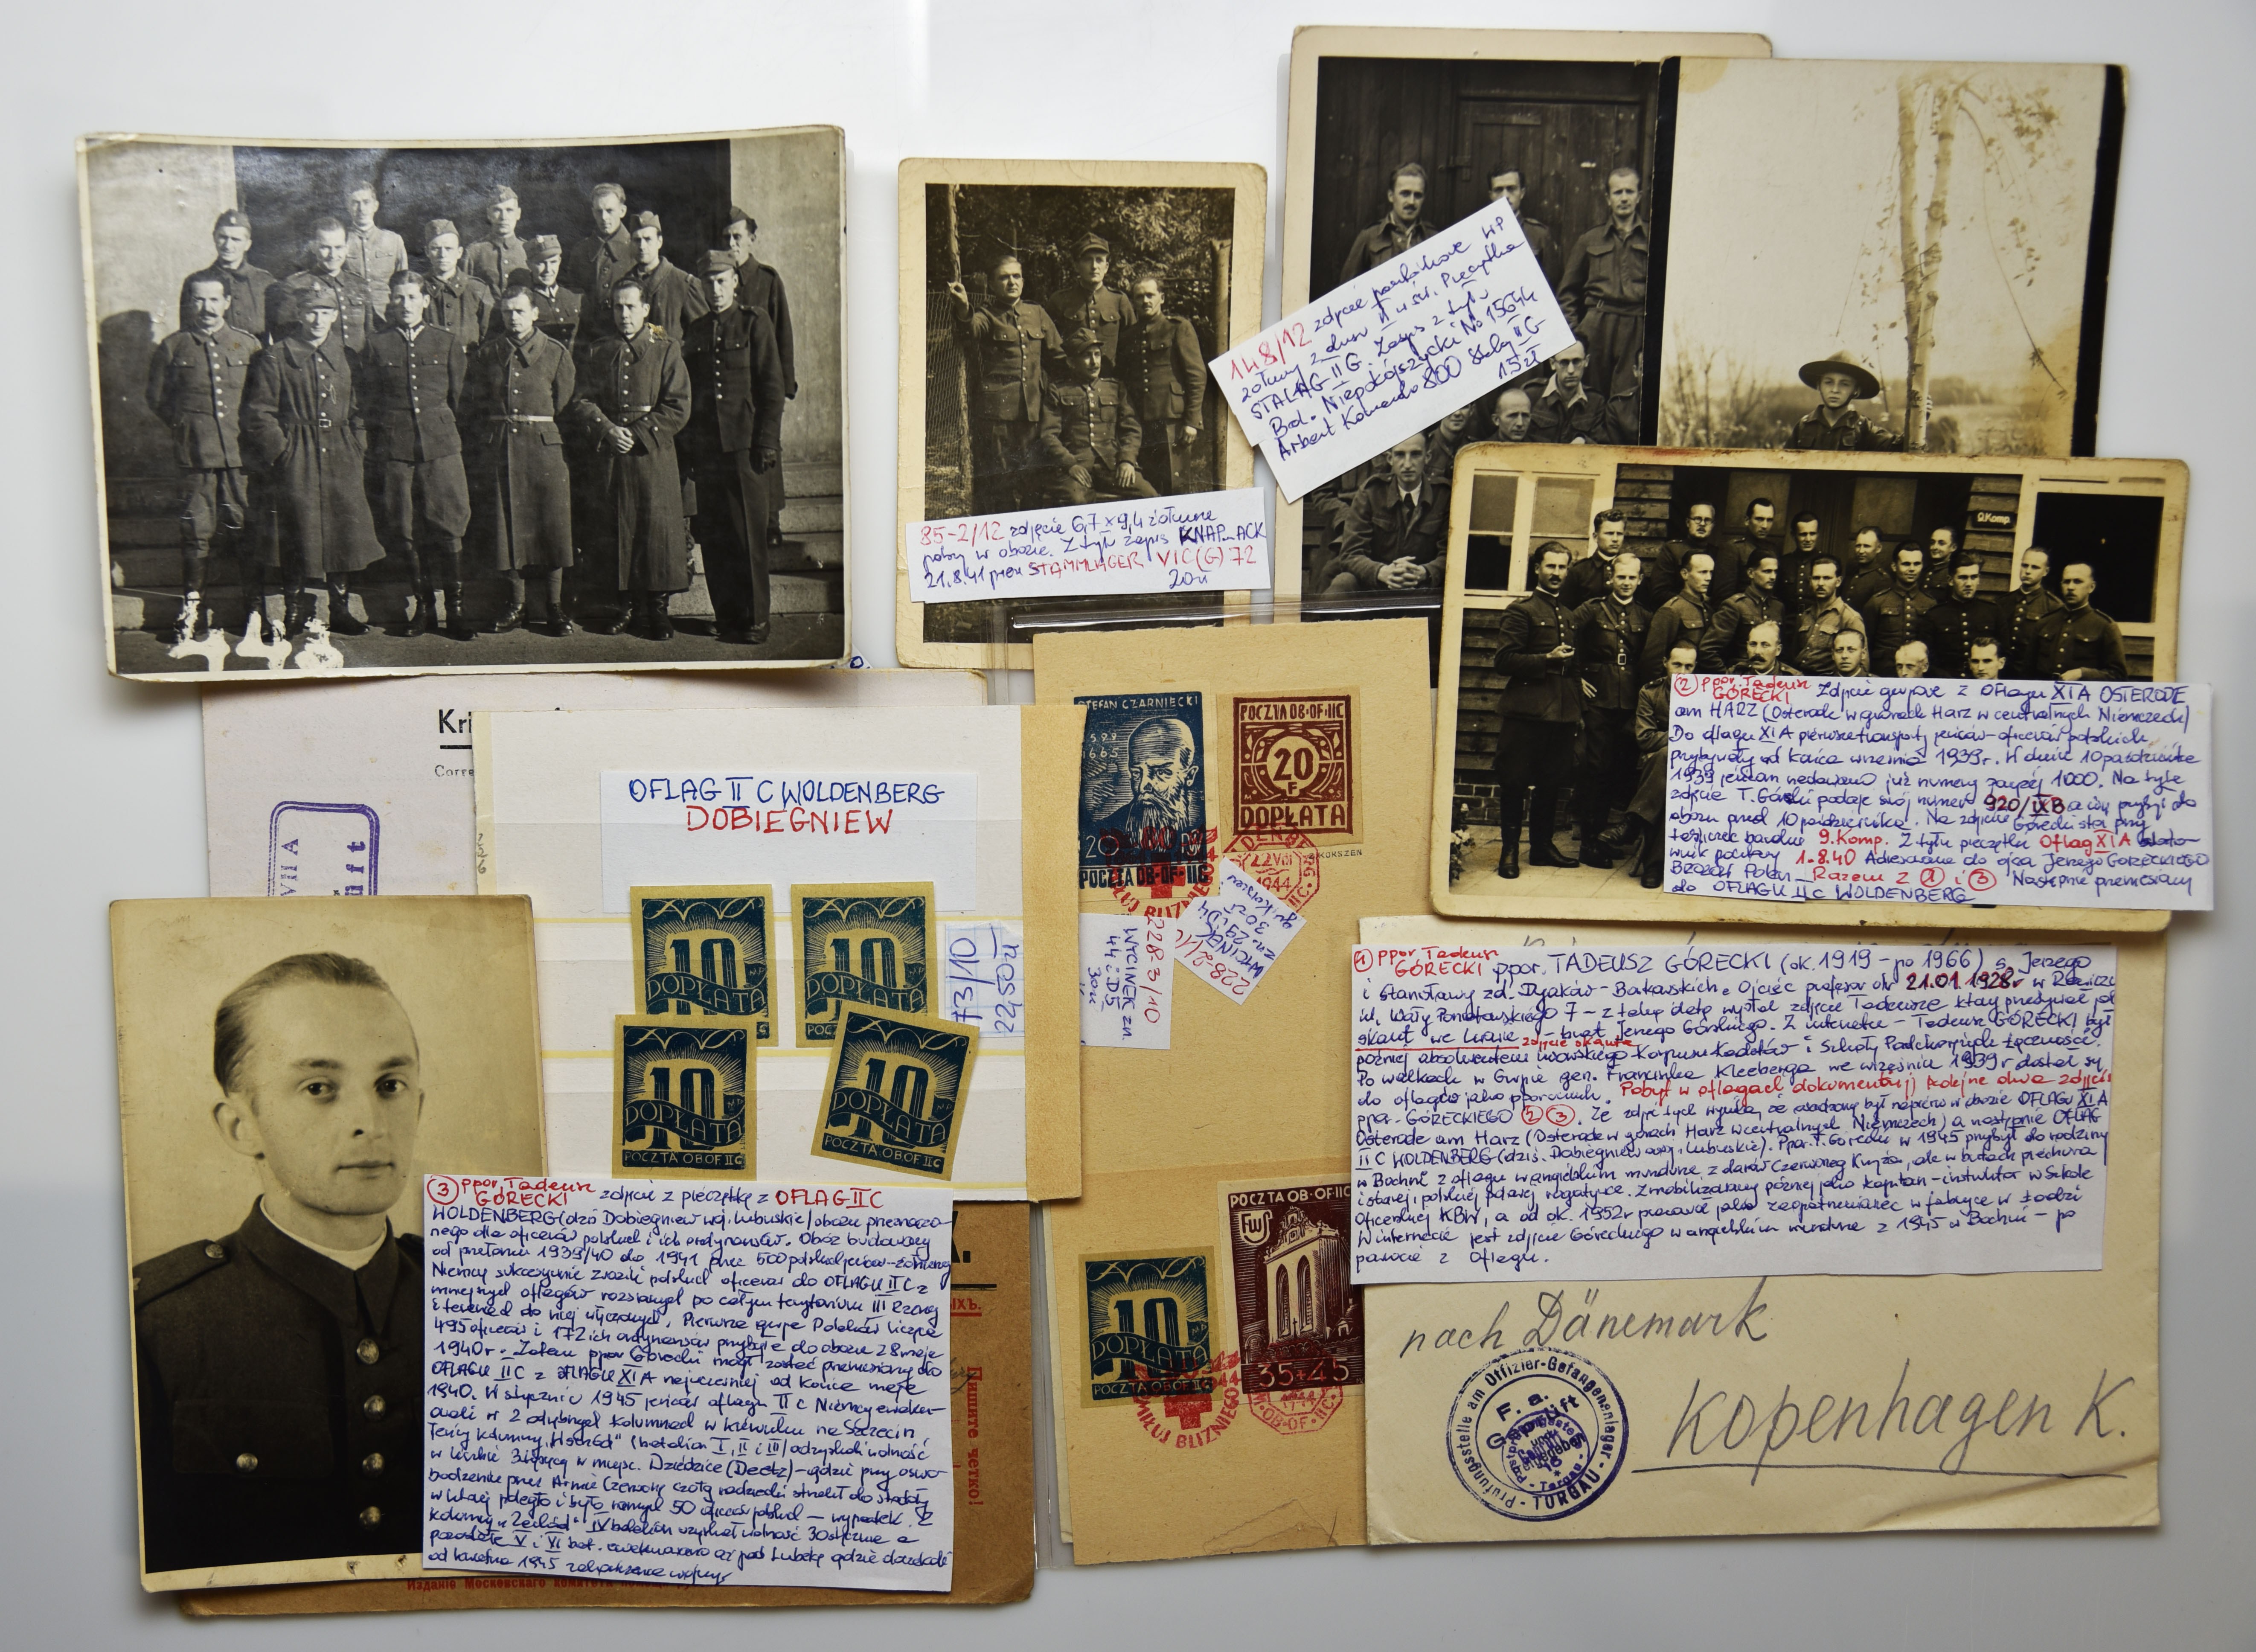 148/12 zdjęcie pocztówkowe WP
II w św. Pieczątka
STALAG II G. Zapis z tyłu
Bol. Niepokójszycki No 15644
Arbeit Komando 800 Stalag II G
15 zł
85-2/12 zdjęcie 6,7 x 9,4 żołnierze
polscy w obozie. Z tyłu zapis KNAP-ACK
21.8.41 pieczę STAMMLAGER VI C (G) 72
20 zł
9. Komp.
② ppor. Tadeusz
GÓRECKI Zdjęcie grupowe z OFLAGU XI A OSTERODE
am HARZ (Osterode w górach Harz w centralnych Niemczech)
Do oflagu XI A pierwsze transporty jeńców-oficerów polskich
przybywały od końca września 1939 r. W dniu 10 października
1939 jeńcom nadawano już numery powyżej 1000. Na tyle
zdjęcia T. Górecki podaje swój numer 920/IX B a więc przybył do
obozu przed 10 października. Na zdjęciu Górecki stoi przy
tabliczce 9. Komp. Z tyłu pieczątka Oflag XI A
1.8.40 Adresowane do ojca Jerzego GÓRECKIEGO
Razem z ① i ③ Następnie przeniesiony
do OFLAGU II C WOLDENBERG
Kri
Corre
VII A
üft
OFLAG II C WOLDENBERG
DOBIEGNIEW
10
DOPŁATA
10
DOPŁATA
POCZ
10
DOPŁATA
POCZTA OB OF II C
10
DOPŁATA
POCZTA OB OF II C
73/10
22,50 zł
STEFAN CZARNIECKI
1599
1665
20
POCZTA OB-OF-IIC
POCZTA OB-OF-IIC
20
F
DOPŁATA
KOKSZEN
22 VIII
1944
228-2/10
WYCINEK
zn. 29 i D4
30 zł
228-3/10
WYCINEK zn.
44 i D5
30 zł
10
DOPŁATA
POCZTA OB OF II C
POCZTA OB-OF-IIC
FWS
35+45
MIŁUJ BLIŹNIEGO
OB-OF-IIC
① ppor. Tadeusz
GÓRECKI ppor. TADEUSZ GÓRECKI (ok. 1919 - po 1966) s. Jerzego
i Stanisławy zd. Dyaków-Bakowskich. Ojciec profesor 21.01.1928 r w
ul. Wały Poniatowskiego 7 - z taką datą wysłał zdjęcie Tadeusza który przedstawiał jako
skaut we Lwowie - brat Jerzego Góreckiego. Z internetu - Tadeusz GÓRECKI był
zdjęcie skauta
później absolwentem lwowskiego Korpusu Kadetów i Szkoły Podchorążych Łączności.
Po walkach w Grupie gen. Franciszka Kleeberga we wrześniu 1939 r dostał się
do oflagów jako pporucznik. Pobyt w oflagach dokumentują kolejne dwa zdjęcia
ppor. GÓRECKIEGO ② ③. Ze zdjęć tych wynika, że osadzony był najpierw w obozie OFLAGU XI A
Osterode am Harz (Osterode w górach Harz w centralnych Niemczech) a następnie OFLAG
II C WOLDENBERG (dziś. Dobiegniew woj. lubuskie). Ppor. T. Górecki w 1945 przybył do rodziny
w Bochni z oflagu w angielskim mundurze z darów Czerwonego Krzyża, ale w butach piechura
i starej, polskiej rogatywce. Zmobilizowany później jako kapitan-instruktor w Szkole
Oficerskiej KBW, a od ok. 1952 r pracował jako zaopatrzeniowiec w fabryce w Łodzi
W internecie jest zdjęcie Góreckiego w angielskim mundurze z 1945 w Bochni - po
powrocie z oflagu.
nach Dänemark
Kopenhagen K.
Prüfungsstelle am Offizier-Gefangenenlager - TORGAU -
F. a.
Geprüft
16
- Torgau -
③ ppor. Tadeusz
GÓRECKI zdjęcie z pieczątką z OFLAG II C
WOLDENBERG (dziś Dobiegniew woj. lubuskie) obozu przeznaczo-
nego dla oficerów polskich i ich ordynansów. Obóz budowany
od przełomu 1939/40 do 1941 przez 500 polskich jeńców-żołnierzy
Niemcy sukcesywnie zwozili polskich oficerów do OFLAGU II C z
mniejszych oflagów rozsianych po całym terytorium III Rzeszy
i terenach do niej włączonych. Pierwsza grupa Polaków licząca
495 oficerów i 172 ich ordynansów przybyła do obozu 28 maja
1940 r. Zatem ppor Górecki mógł zostać przeniesiony do
OFLAGU II C z OFLAGU XI A najwcześniej od końca maja
1940. W styczniu 1945 jeńców oflagu II C Niemcy ewaku-
owali w 2 odrębnych kolumnach w kierunku na Szczecin.
Jeńcy kolumny "Wschód" (batalion I, II i III) odzyskali wolność
w miejsc. Dziedzice (Deetz) - gdzie przy oswo-
bodzeniu przez Armię Czerwoną czołg radziecki strzelił do stodoły
w której poległo i było rannych 50 oficerów polskich - wypadek. Z
kolumny "Zachód" IV batalion uzyskał wolność 30 stycznia a
pozostałe V i VI bat. ewakuowano aż pod Lubekę gdzie doczekali
od kwietnia 1945 zakończenia wojny
ЫХЪ.
Пишите четко!
Изданіе Московскаго комитета